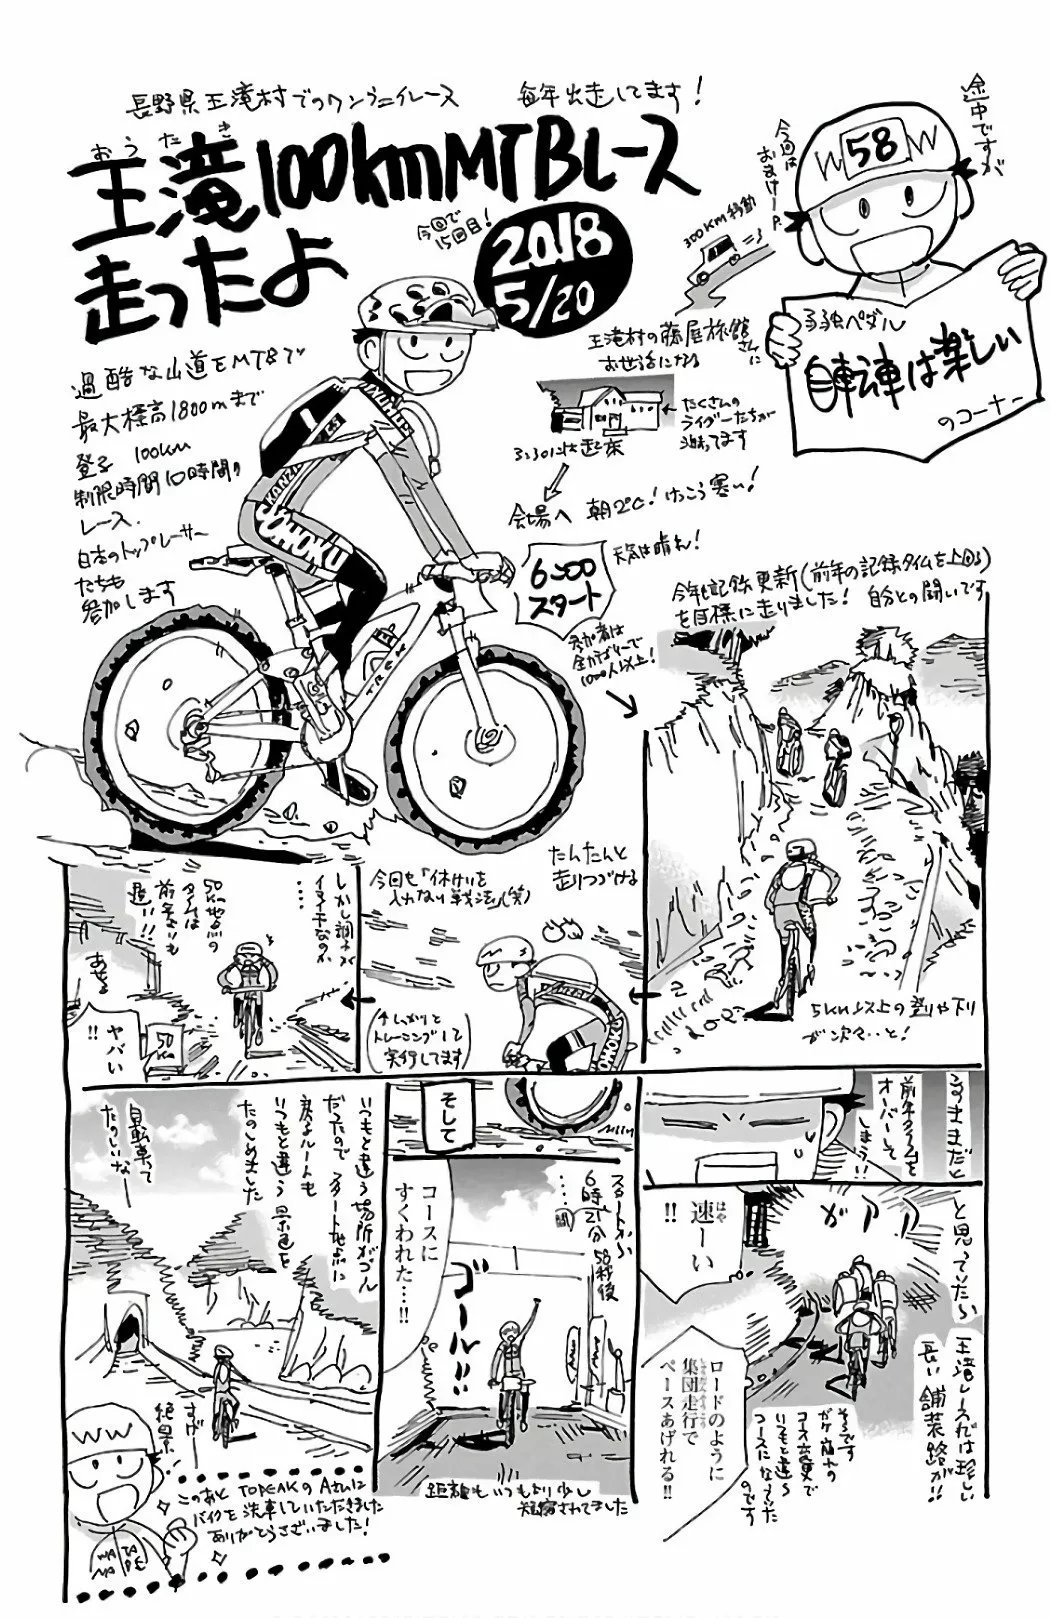 途中ですが
今回は
おまけーP.
W 58 W
弱虫ペダル
自転車は楽しい
のコーナー
長野県王滝村でのワンデイレース
毎年出走してます!
おうたき
王滝100kmMTBレース
走ったよ
今回で
15回目!
2018
5/20
300km移動
王滝村の藤屋旅館
さんに
お世話になる
たくさんの
ライダーたちが
泊ってます
3:30には起床
会場へ 朝2℃! けっこう寒い!
過酷な山道をMTBで
最大標高1800mまで
登る 100km
制限時間10時間の
レース.
日本のトップレーサー
たちも
参加します
KANZAKI
SOHOKU
TREK
6:00
スタート
天気は晴れ!
参加者は
全カテゴリーで
1000人以上!
今年も記録更新(前年の記録タイムを上回る)
を目標に走りました! 自分との闘いです
5km以上の登りや下り
が次々・・と!
たんたんと
走りつづける
今回も「休けいを
入れない戦法」(笑)
(↑しっかりと
トレーニングして
実行してます)
しかし調子が
イマイチなのか
・・・
50km地点の
タイムは
前年よりも
遅い!!
あせる
ヤバい
!!
50
km
このままだと
前年タイムを
オーバーして
しまう!!
と思っていたら
王滝レースでは珍しい
長い舗装路が!!
ガアアア
速ーい
はや
!!
ロードのように
集団走行で
ペースあげれる!!
そうです
がけ崩れの
コース変更で
いつもと違う
コースになっていた
のです
そして
スタートから
6時間21分58秒後
・・・・
ゴール!!
コースに
すくわれた…!!
距離もいつもより少し
短縮されてました
いつもと違う場所がゴール
だったので スタート地点に
戻るルートも
いつもと違う景色を
たのしめました
自転車って
たのしいなー
すげー
絶景
W W
このあと TOPEAKのAさんに
バイクを洗車していただきました
ありがとうございました!
WA TA
NA PE